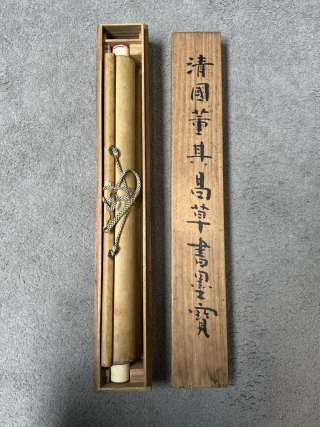 清國董其昌草書墨寶